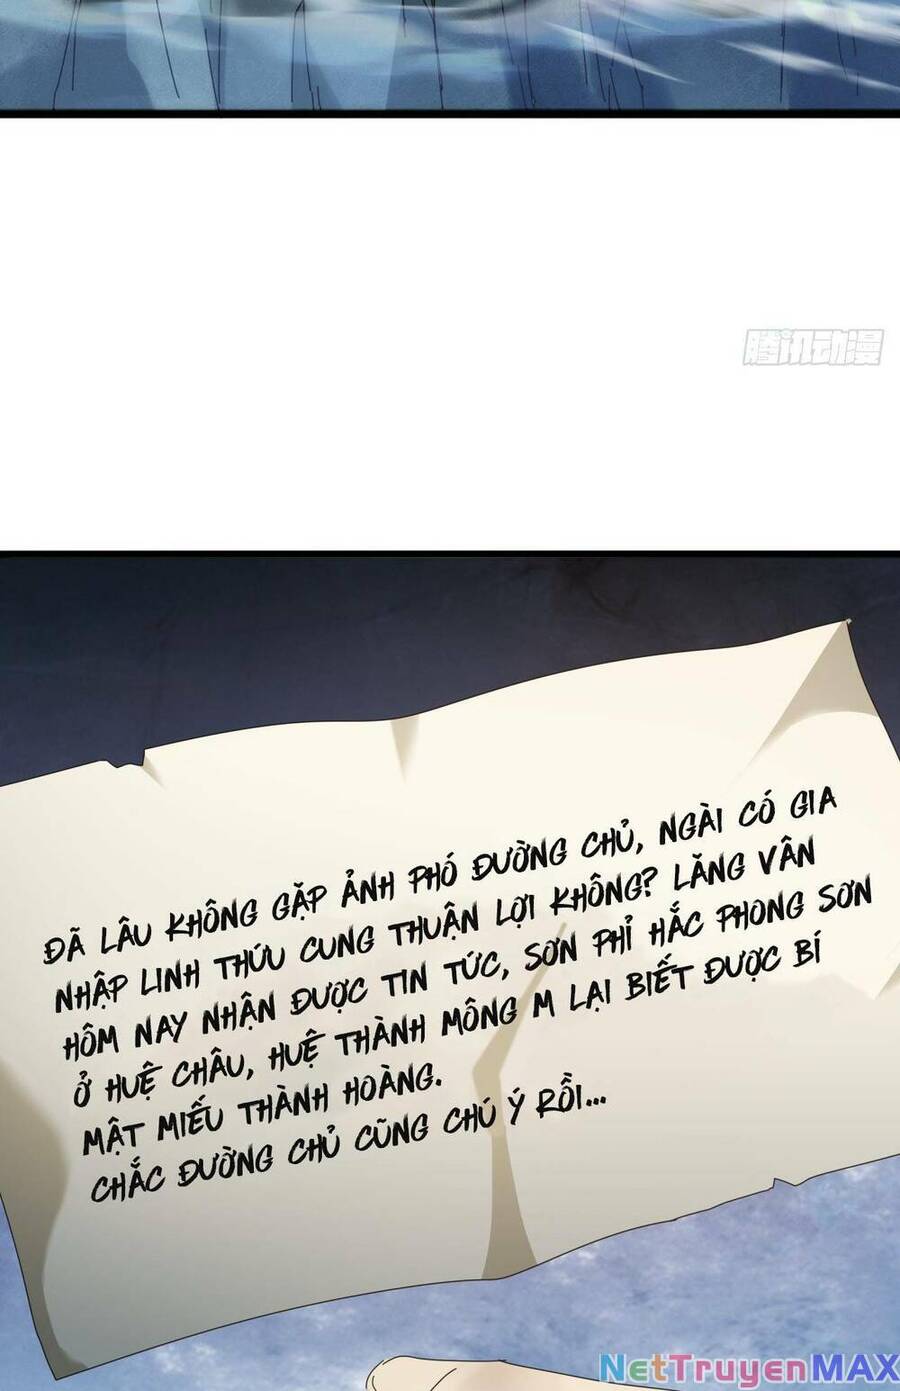 腾讯动漫
ĐÃ LÂU KHÔNG GẶP ẢNH PHÓ ĐƯỜNG CHỦ, NGÀI CÓ GIA
NHẬP LINH THỨU CUNG THUẬN LỢI KHÔNG? LĂNG VÂN
HÔM NAY NHẬN ĐƯỢC TIN TỨC, SƠN PHỈ HẮC PHONG SƠN
Ở HUỆ CHÂU, HUỆ THÀNH MÔNG M LẠI BIẾT ĐƯỢC BÍ
MẬT MIẾU THÀNH HOÀNG.
CHẮC ĐƯỜNG CHỦ CŨNG CHÚ Ý RỒI...
NETTRUYENMAX